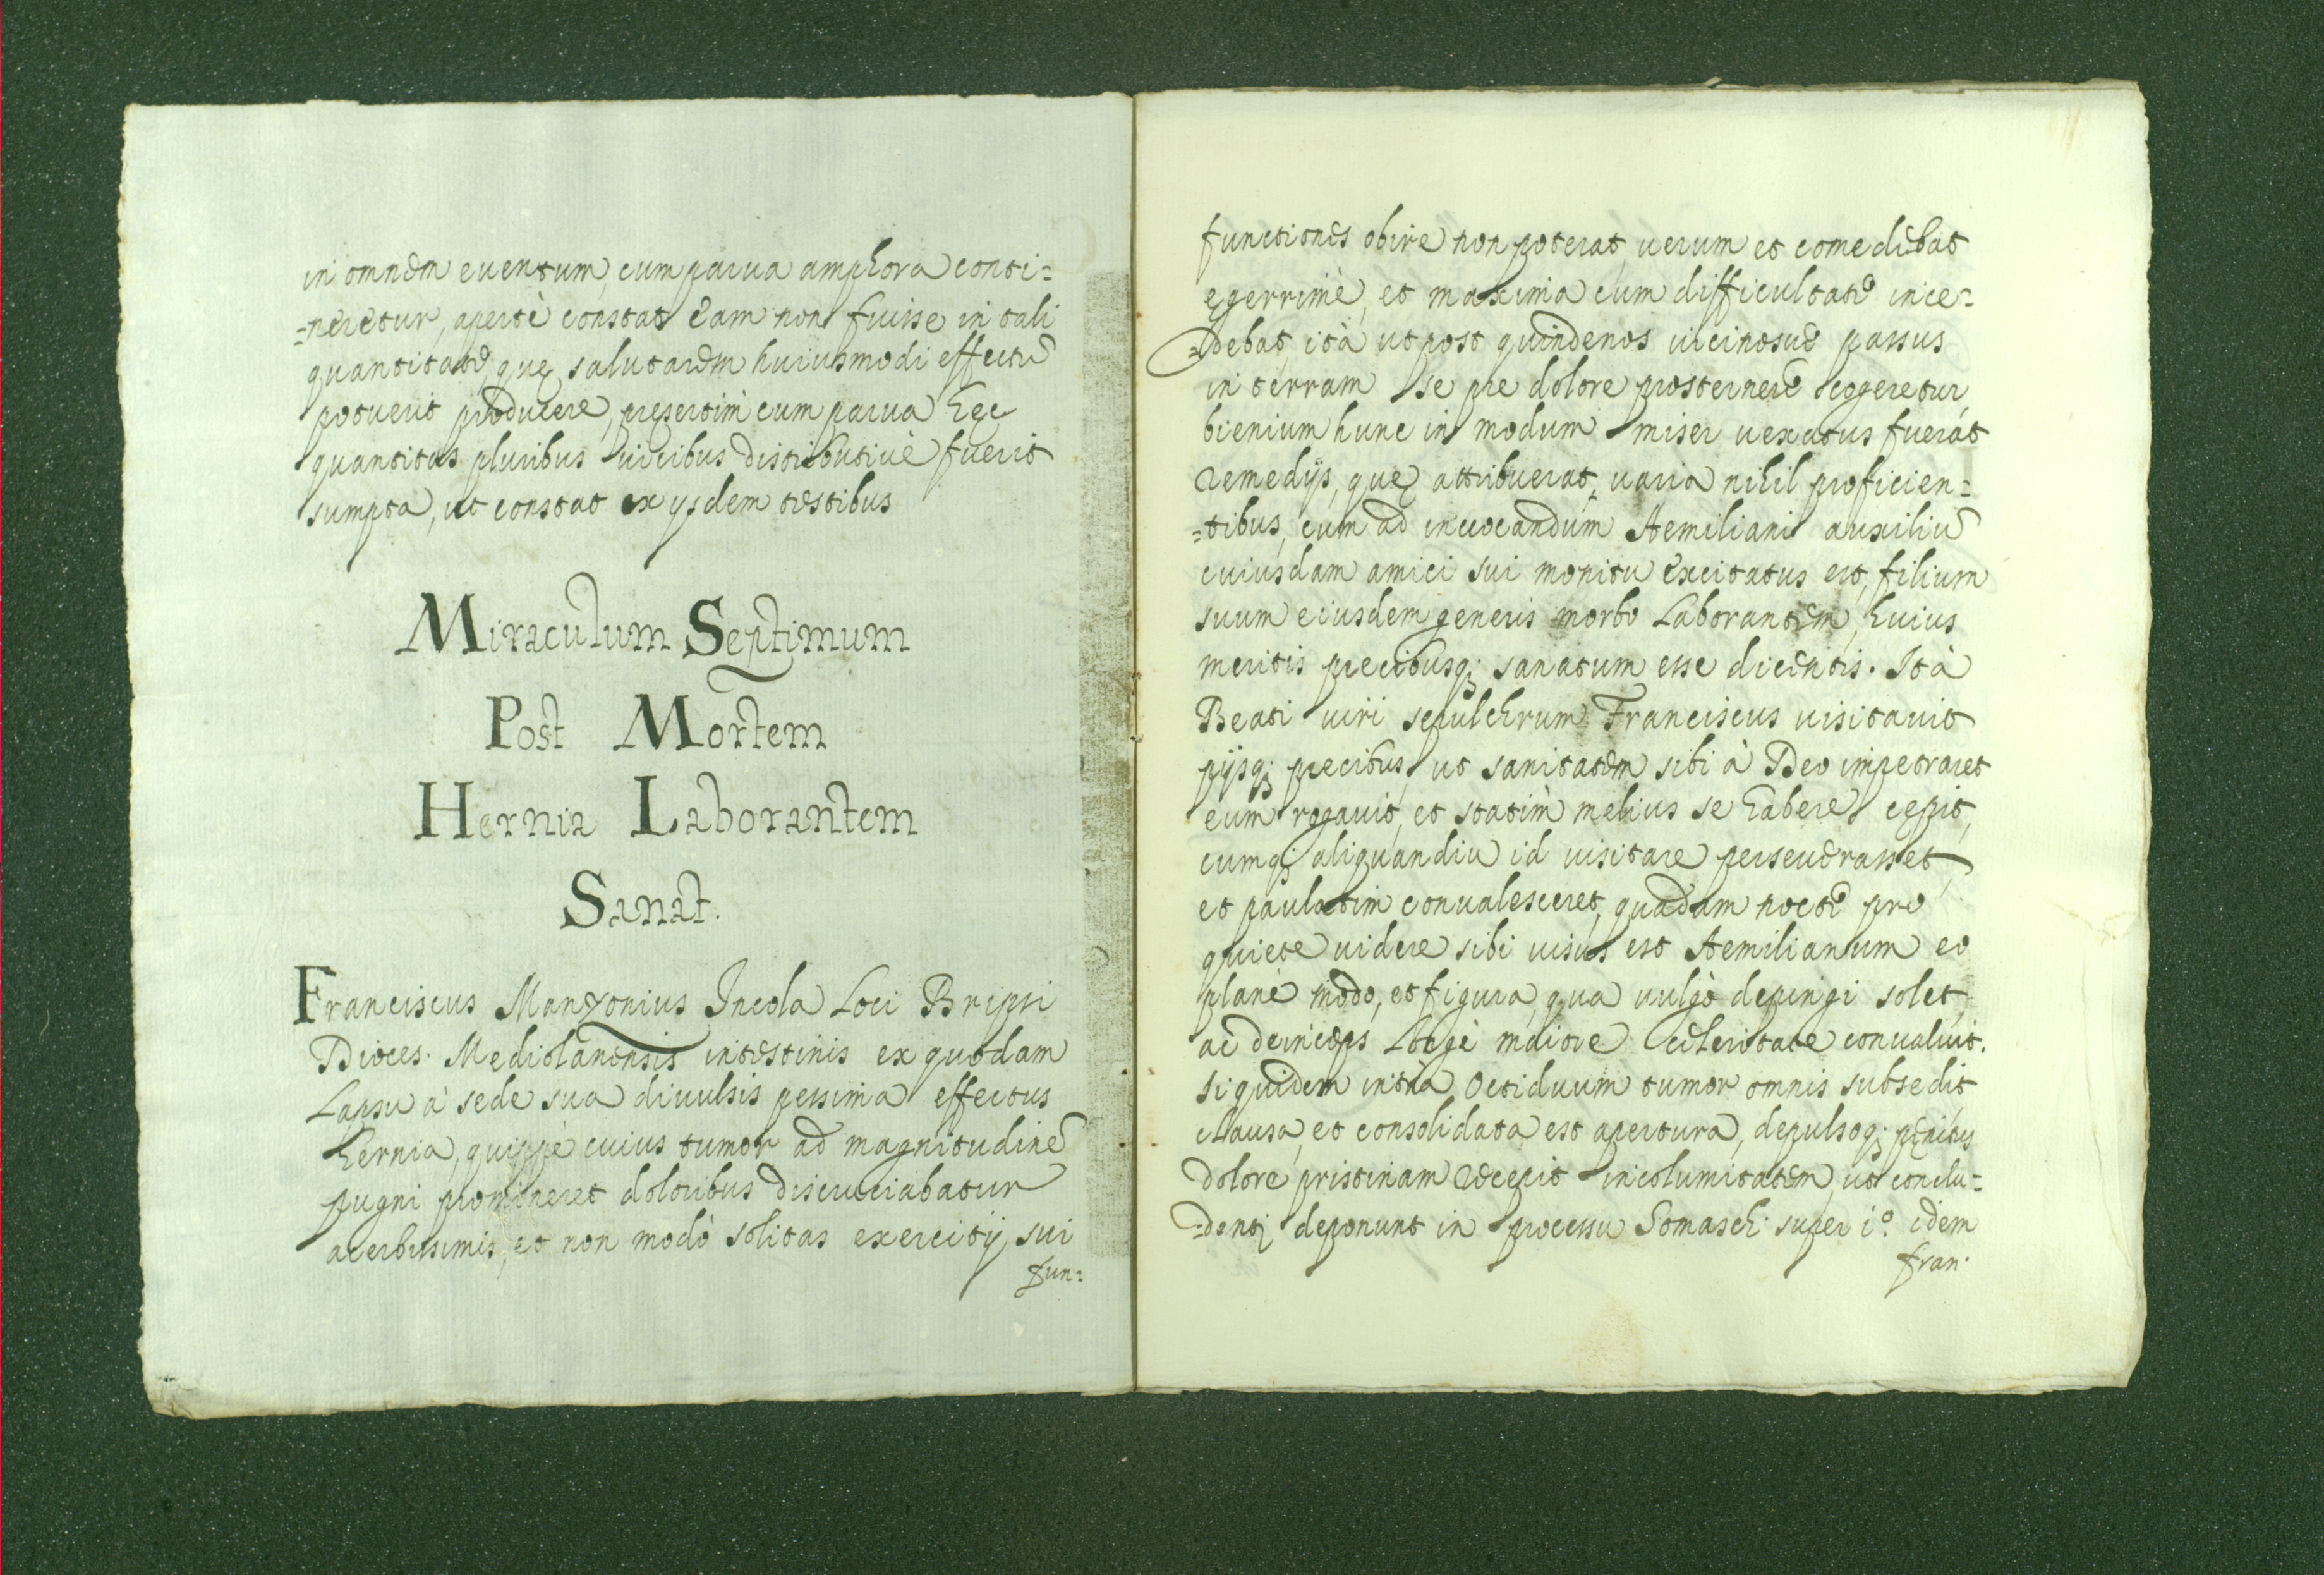 in omnem euentum, cum parua amphora conti=
=neretur, apertè constat eam non fuisse in tali
quantitate, quę salutarem huiusmodi effectū
potuerit producere, presertim cum parua hęc
quantitas pluribus uicibus distributiuè fuerit
sumpta, ut constat ex ysdem testibus
Miraculum Septimum
Post Mortem
Hernia Laborantem
Sanat.
Franciscus Manzonius Incola Loci Bripsi
Dioces. Mediolanensis intestinis ex quodam
Lapsu à sede sua diuulsis pessima effectus
hernia, quippè cuius tumor ad magnitudinē
pugni promineret doloribus discruciabatur
acerbissimis, et non modò solitas exercitij sui
fun=
functiones obire non poterat, uerum et comedebat
egerrimè, et maxima cum difficultate ince=
=debat, ità ut post quindenos uicenosue passus
in terram se pre dolore prosternere cogeretur
bienium hunc in modum miser uexatus fuerat
remedijs, quę attribuerat, uaria nihil proficien=
=tibus, cum ad inuocandum Aemiliani auxiliū
cuiusdam amici sui monitu excitatus est, filium
suum eiusdem generis morbo Laborantem, huius
meritis precibusq; sanatum esse dicentis. Ità
Beati uiri sepulchrum Franciscus uisitauit
pijsq; precibus, ut sanitatem sibi à Deo impetraret
eum rogauit, et statim melius se habere cępit,
cumq; aliquandiu id uisitare perseuerasset,
et paulatim conualesceret, quadam nocte pro
quiete uidere sibi uisus est Aemilianum eo
planè modo, et figura, qua uulgò depingi solet,
ac deinceps Longè maiore celeritate conualuit.
siquidem intra Octiduum tumor omnis subsedit
clausa, et consolidata est apertura, depulsoq; penitus
dolore pristinam recepit incolumitatem, ut conclu=
=denti deponunt in processu Somasch. super i.º idem
fran.